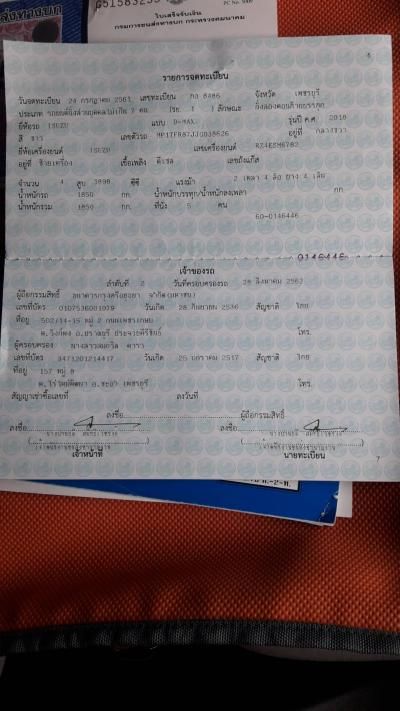 ส่งทางบก
G51583255
ใบเสร็จรับเงิน
กรมการขนส่งทางบก กระทรวงคมนาคม
6
รายการจดทะเบียน
วันจดทะเบียน 24 กรกฎาคม 2561 เลขทะเบียน กง 8486 จังหวัด เพชรบุรี
ประเภท รถยนต์นั่งส่วนบุคคลไม่เกิน 7 คน (รย. 1 ) ลักษณะ นั่งสองตอนท้ายบรรทุก
ยี่ห้อรถ ISUZU แบบ D-MAX รุ่นปี ค.ศ. 2018
สี ขาว เลขตัวรถ MP1TFR87JJG038626 อยู่ที่ กลางขวา
ยี่ห้อเครื่องยนต์ ISUZU เลขเครื่องยนต์ RZ4ESM6782
อยู่ที่ ซ้ายเครื่อง เชื้อเพลิง ดีเซล เลขถังแก๊ส
จำนวน 4 สูบ 1898 ซีซี แรงม้า 2 เพลา 4 ล้อ ยาง 4 เส้น
น้ำหนักรถ 1850 กก. น้ำหนักบรรทุก/น้ำหนักลงเพลา กก.
น้ำหนักรวม 1850 กก. ที่นั่ง 5 คน
60-0146446
0146446
เจ้าของรถ
ลำดับที่ 2 วันที่ครอบครองรถ 28 สิงหาคม 2562
ผู้ถือกรรมสิทธิ์ ธนาคารกรุงศรีอยุธยา จำกัด(มหาชน)
เลขที่บัตร 0107536001079 วันเกิด 28 กันยายน 2536 สัญชาติ ไทย
ที่อยู่ 502/14-15 หมู่ 2 ถนนเพชรเกษม
ต.วังก์พง อ.ปราณบุรี ประจวบคีรีขันธ์ โทร.
ผู้ครอบครอง
เลขที่บัตร 3471201214417 วันเกิด 25 มกราคม 2517 สัญชาติ ไทย
ที่อยู่ 157 หมู่ 8
ต.ไร่ใหม่พัฒนา อ.ชะอำ เพชรบุรี โทร.
สัญญาเช่าซื้อเลขที่ ลงวันที่
ลงชื่อ ผู้ถือกรรมสิทธิ์
ลงชื่อ ลงชื่อ
เจ้าหน้าที่ นายทะเบียน
7